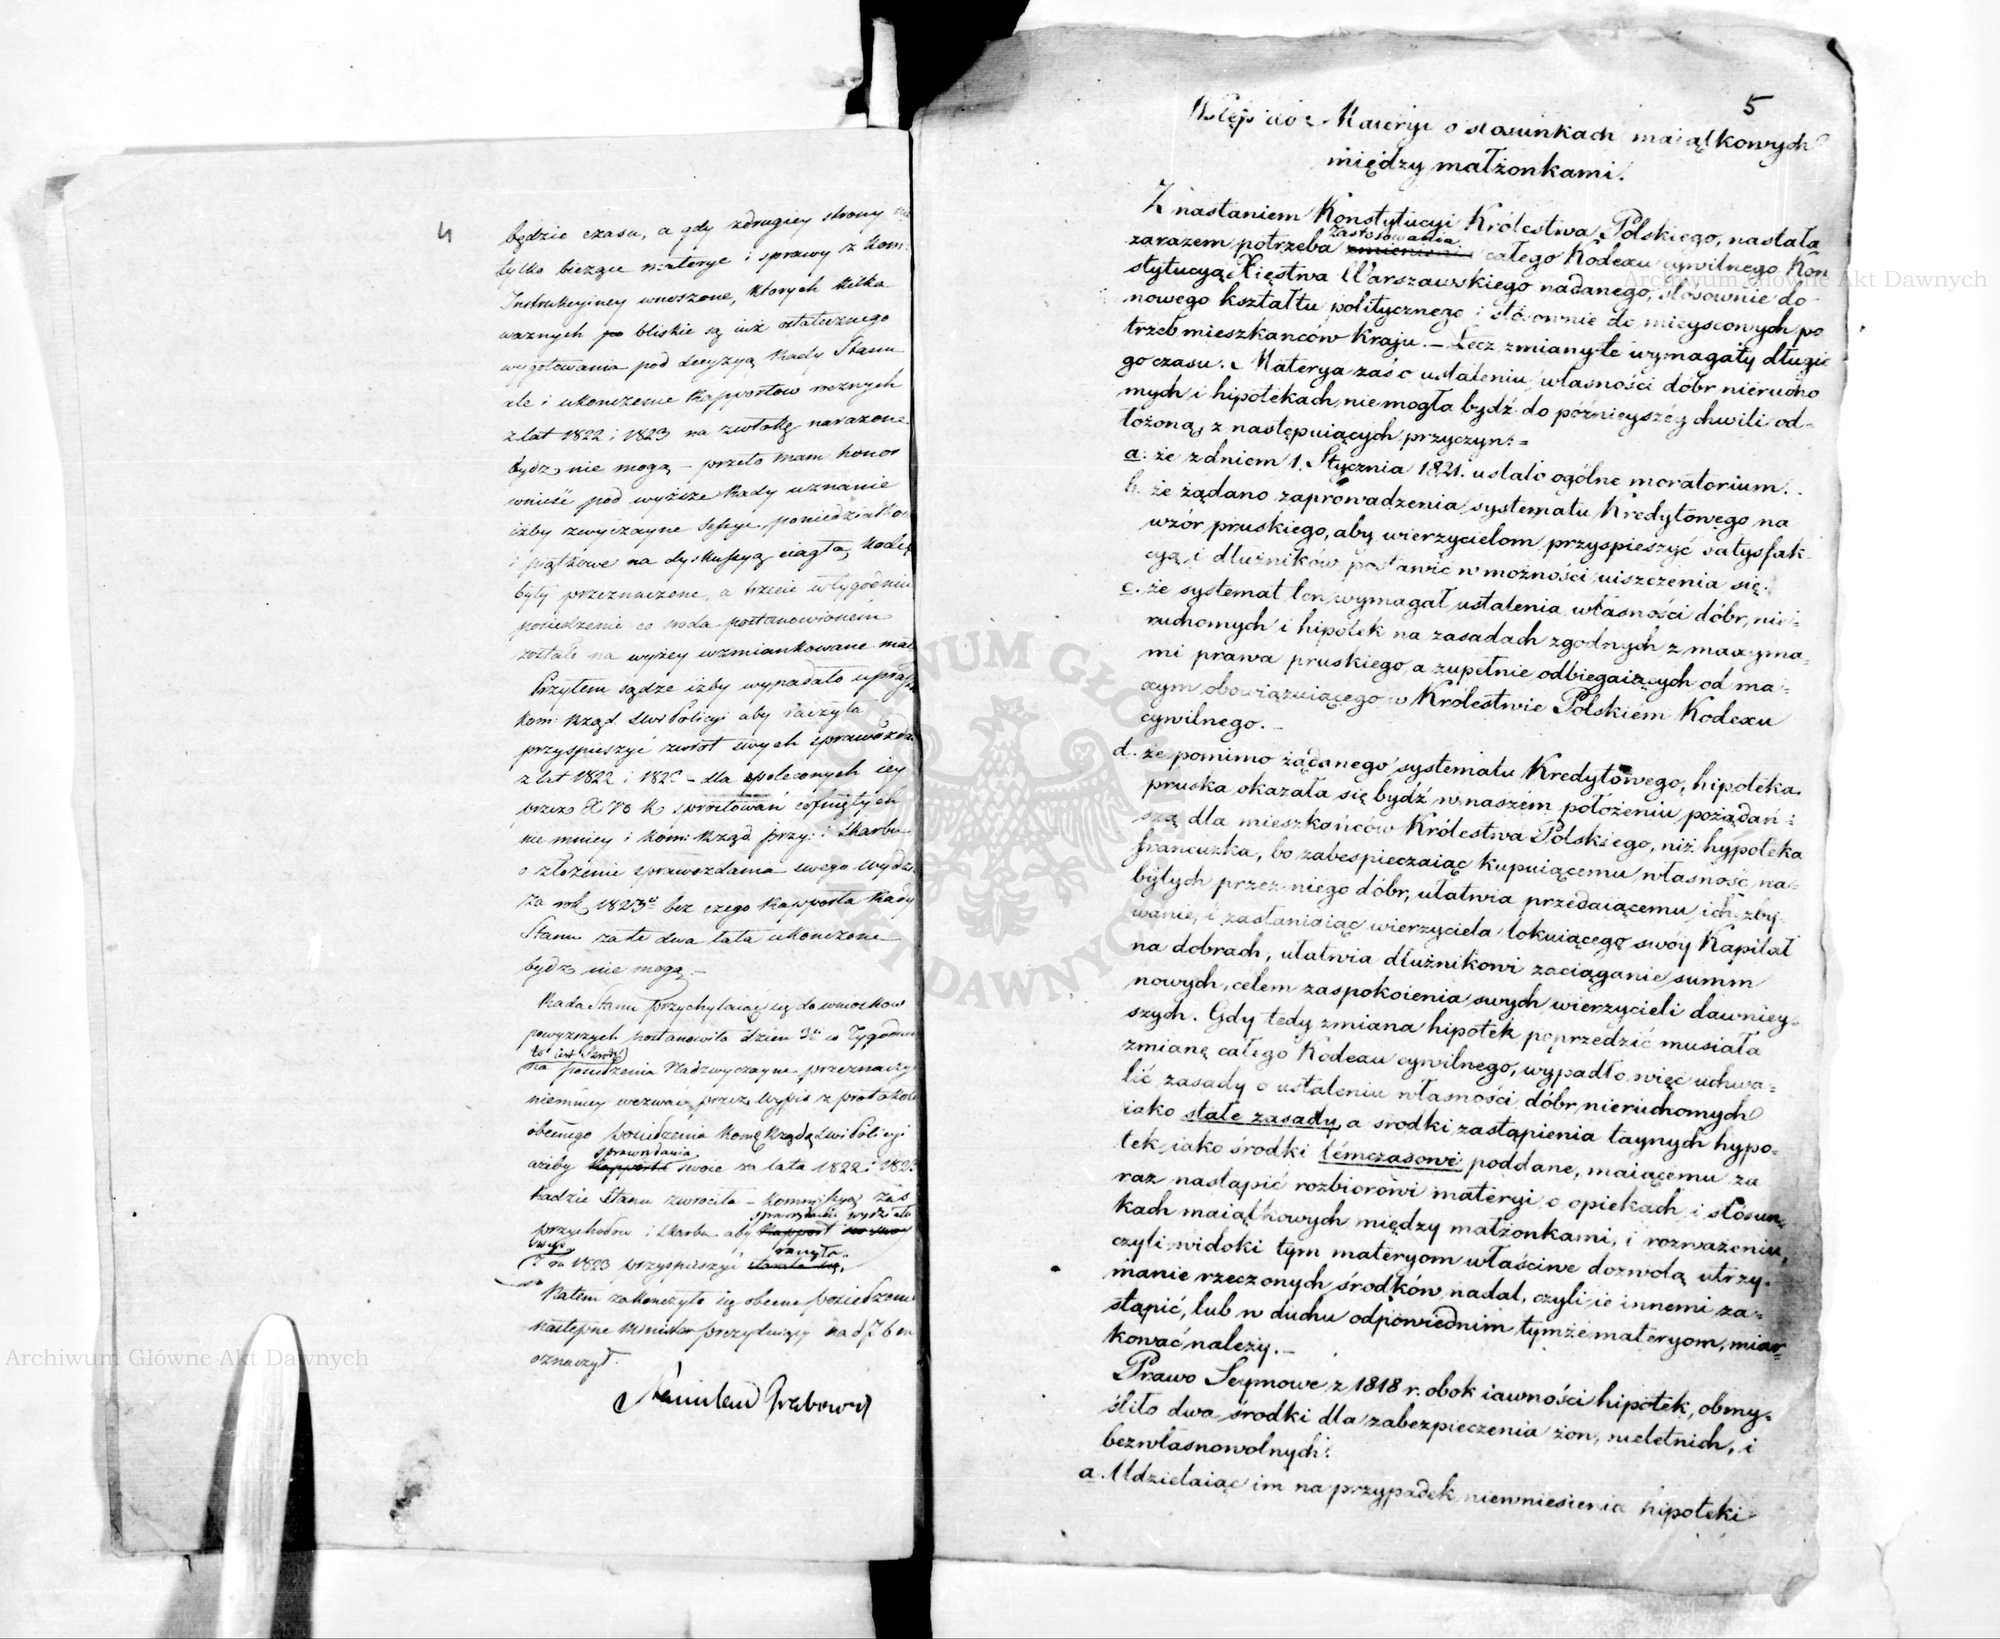 4
będzie czasu, a gdy zdrugiey strony nie
tylko bieżące materye i sprawy z Kom:
Instrukcyiney wnoszone, których kilka
ważnych bliskie są iuż ostatecznego
wygotowania pod decyzyą Rady Stanu
ale i ukończenie Rapportow rocznych
z lat 1822 i 1823 na zwłokę narażone
bydź nie mogą – przeto mam honor
wnieść pod wyższe Rady uznanie
iżby zwyczayne sessye poniedziałko
i piątkowe na dyskussyą ciągłą Kode
były przeznaczone, a trzecie w tygodniu
posiedzenie co środa postanowionem
zostało na wyżey wzmiankowane mat
Przytem sądzę iżby wypadało uprasz
Kom: Rząd: Swi Policyi aby raczyła
przyspieszyć zwrot swych sprawozda
z lat 1822 i 182 – dla poleconych iey
przez sprostowań cofniętych
nie mniey i Kom: Rząd przy: i Skarbu
o złożenie sprawozdania swego wydz
za rok 1823 bez czego Rapporta Rady
Stanu za te dwa lata ukończone
bydz nie mogą. –
Rada Stanu przychylaiąc się do wniosków
powyższych postanowiła dzień 3ci w Tygodniu
to iest Środę
na posiedzenia Nadzwyczayne przeznaczyć
niemniey wezwać przez wypis z protokołu
obecnego posiedzenia Komę Rządą Swi Policyi
sprawozdania
ażeby Rapporta swoie za lata 1822 i 1823
Radzie Stanu zwróciła – Kommissyę zaś
sprawozdanie wydziału
przychodów i Skarbu aby Rapport
swego raczyła.
z r. 1823 przyspieszyć starała się.
Natem zakończyło się obecne posiedzenie
następne Minister prezyduiący na d
oznaczył.
Stanisław Grabowski
5
Wstęp do Materyi o stosunkach maiątkowych
między małżonkami.
Z nastaniem Konstytucyi Królestwa Polskiego, nastała
zastosowania
zarazem potrzeba zmienienia całego Kodexu cywilnego Kon
stytucyą Xięstwa Warszawskiego nadanego, stosownie do
nowego kształtu politycznego i stósownie do mieyscowych po
trzeb mieszkańców Kraju. – Lecz zmiany te wymagały długie
go czasu. Materya zaś o ustaleniu własności dóbr nierucho
mych i hipotekach, nie mogła bydź do późnieyszéy chwili od-
łożoną, z następuiących przyczyn: =
a. że z dniem 1. Stycznia 1821. ustało ogólne moratorium.
b. że żądano zaprowadzenia systematu Kredytowego na
wzór pruskiego, aby wierzycielom przyspieszyć satysfak-
cyą, i dłużników postawić w możności uiszczenia się.
c. że systemat ten wymagał ustalenia własności dóbr, nie-
ruchomych i hipotek na zasadach zgodnych z maxyma-
mi prawa pruskiego, a zupełnie odbiegaiących od ma-
xym obowiązuiącego w Królestwie Polskiem Kodexu
cywilnego. –
d. że pomimo żądanego systematu Kredytowego, hipoteka
pruska okazała się bydź w naszém położeniu pożądań-
szą dla mieszkańców Królestwa Polskiego, niż hypoteka
francuzka, bo zabespieczaiąc kupuiącemu własność na-
bytych przez niego dóbr, ułatwia przedaiącemu ich zby-
wanie, i zasłaniaiąc wierzyciela lokuiącego swóy Kapitał
na dobrach, ułatwia dłużnikowi zaciąganie summ
nowych, celem zaspokoienia swych wierzycieli dawniey-
szych. Gdy tedy zmiana hipotek poprzedzić musiała
zmianę całego Kodexu cywilnego, wypadło więc uchwa-
lić zasady o ustaleniu własności dóbr nieruchomych
iako stałe zasady, a srodki zastąpienia taynych hypo-
tek, iako środki témczasowe poddane, maiącemu za
raz nastąpić rozbiorowi materyi o opiekach i stósun-
kach maiątkowych między małżonkami, i rozważeniu,
czyli widoki tym materyom właściwe dozwolą utrzy-
manie rzeczonych środków, nadal, czyli ie innemi za-
stąpić, lub w duchu odpowiednim tymże materyom, miar-
kować należy. –
Prawo Seymowe z 1818 r. obok iawności hipotek, obmy-
śliło dwa środki dla zabezpieczenia żon, nieletnich, i
bezwłasnowolnych:
a. Udzielaiąc im na przypadek niewniesienia hipoteki